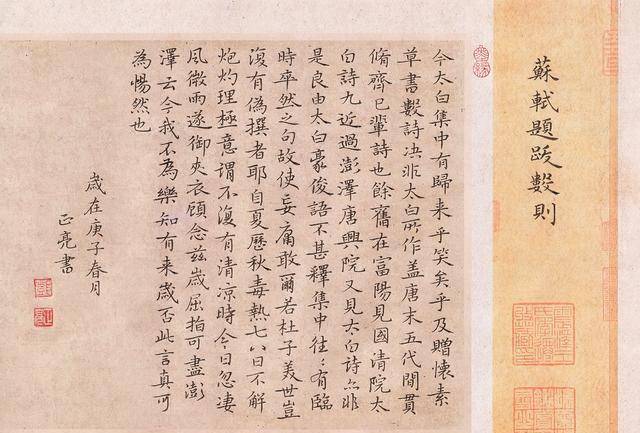 蘇軾題跋數則
今太白集中有歸来乎笑矣乎及贈懷素
草書數詩决非太白所作盖唐末五代間貫
脩齊已輩詩也餘舊在富陽見國清院太
白詩九近過彭澤唐興院又見太白詩亦非
是良由太白豪俊語不甚釋集中往〻有臨
時卒然之句故使妄庸敢爾若杜子美世豈
復有偽撰者耶自夏歷秋毒熱七八日不解
炮灼理極意謂不復有清凉時今日忽凄
風微雨遂御夾衣顧念兹歲屈指可盡彭
澤云今我不為樂知有来歲否此言真可
為惕然也
歲在庚子春月
正亮書